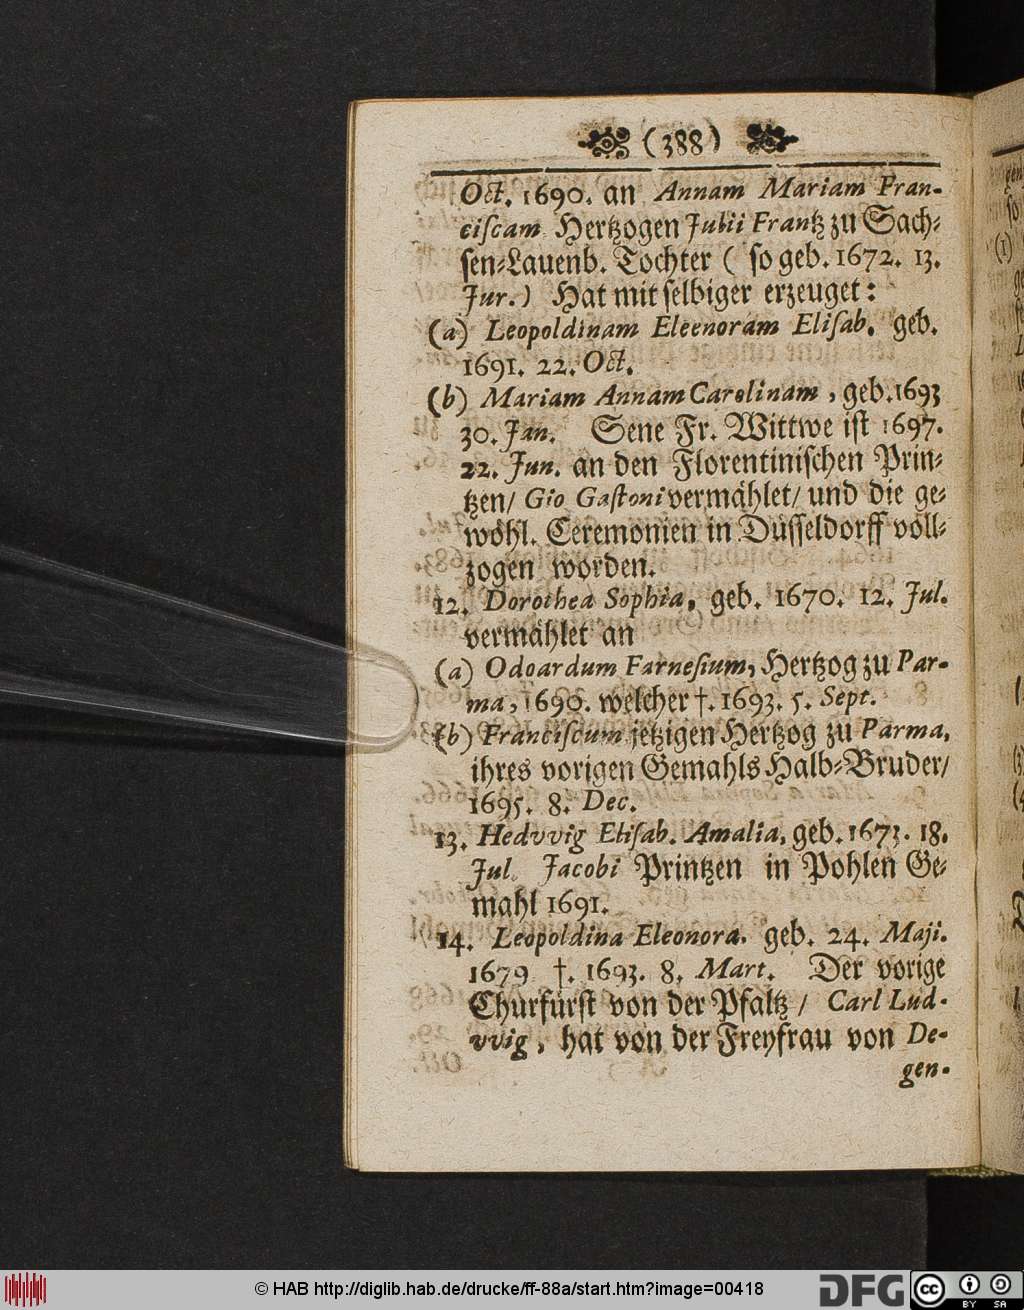 (388)
Oct. 1690. an Annam Mariam Fran-
ciſcam Hertzogen Julii Frantz zu Sach-
ſen-Lauenb. Tochter ( ſo geb. 1672. 13.
Jur.) Hat mit ſelbiger erzeuget:
(a) Leopoldinam Eleenoram Eliſab. geb.
1691. 22. Oct.
(b) Mariam Annam Carolinam, geb. 1693
30. Jan. Sene Fr. Wittwe iſt 1697.
22. Jun. an den Florentiniſchen Prin-
tzen/ Gio Gaſtoni vermählet/ und die ge-
wöhl. Ceremonien in Düſſeldorff voll-
zogen worden.
12. Dorothea Sophia, geb. 1670. 12. Jul.
vermählet an
(a) Odoardum Farneſium, Hertzog zu Par-
ma, 1690. welcher †. 1693. 5. Sept.
(b) Franciſcum jetzigen Hertzog zu Parma,
ihres vorigen Gemahls Halb-Bruder/
1695. 8. Dec.
13. Hedvvig Eliſab. Amalia, geb. 1673. 18.
Jul. Jacobi Printzen in Pohlen Ge-
mahl 1691.
14. Leopoldina Eleonora. geb. 24. Maji.
1679 †. 1693. 8. Mart. Der vorige
Churfürſt von der Pfaltz / Carl Lud-
vvig, hat von der Freyfrau von De-
gen-
© HAB http://diglib.hab.de/drucke/ff-88a/start.htm?image=00418
DFG
cc BY SA